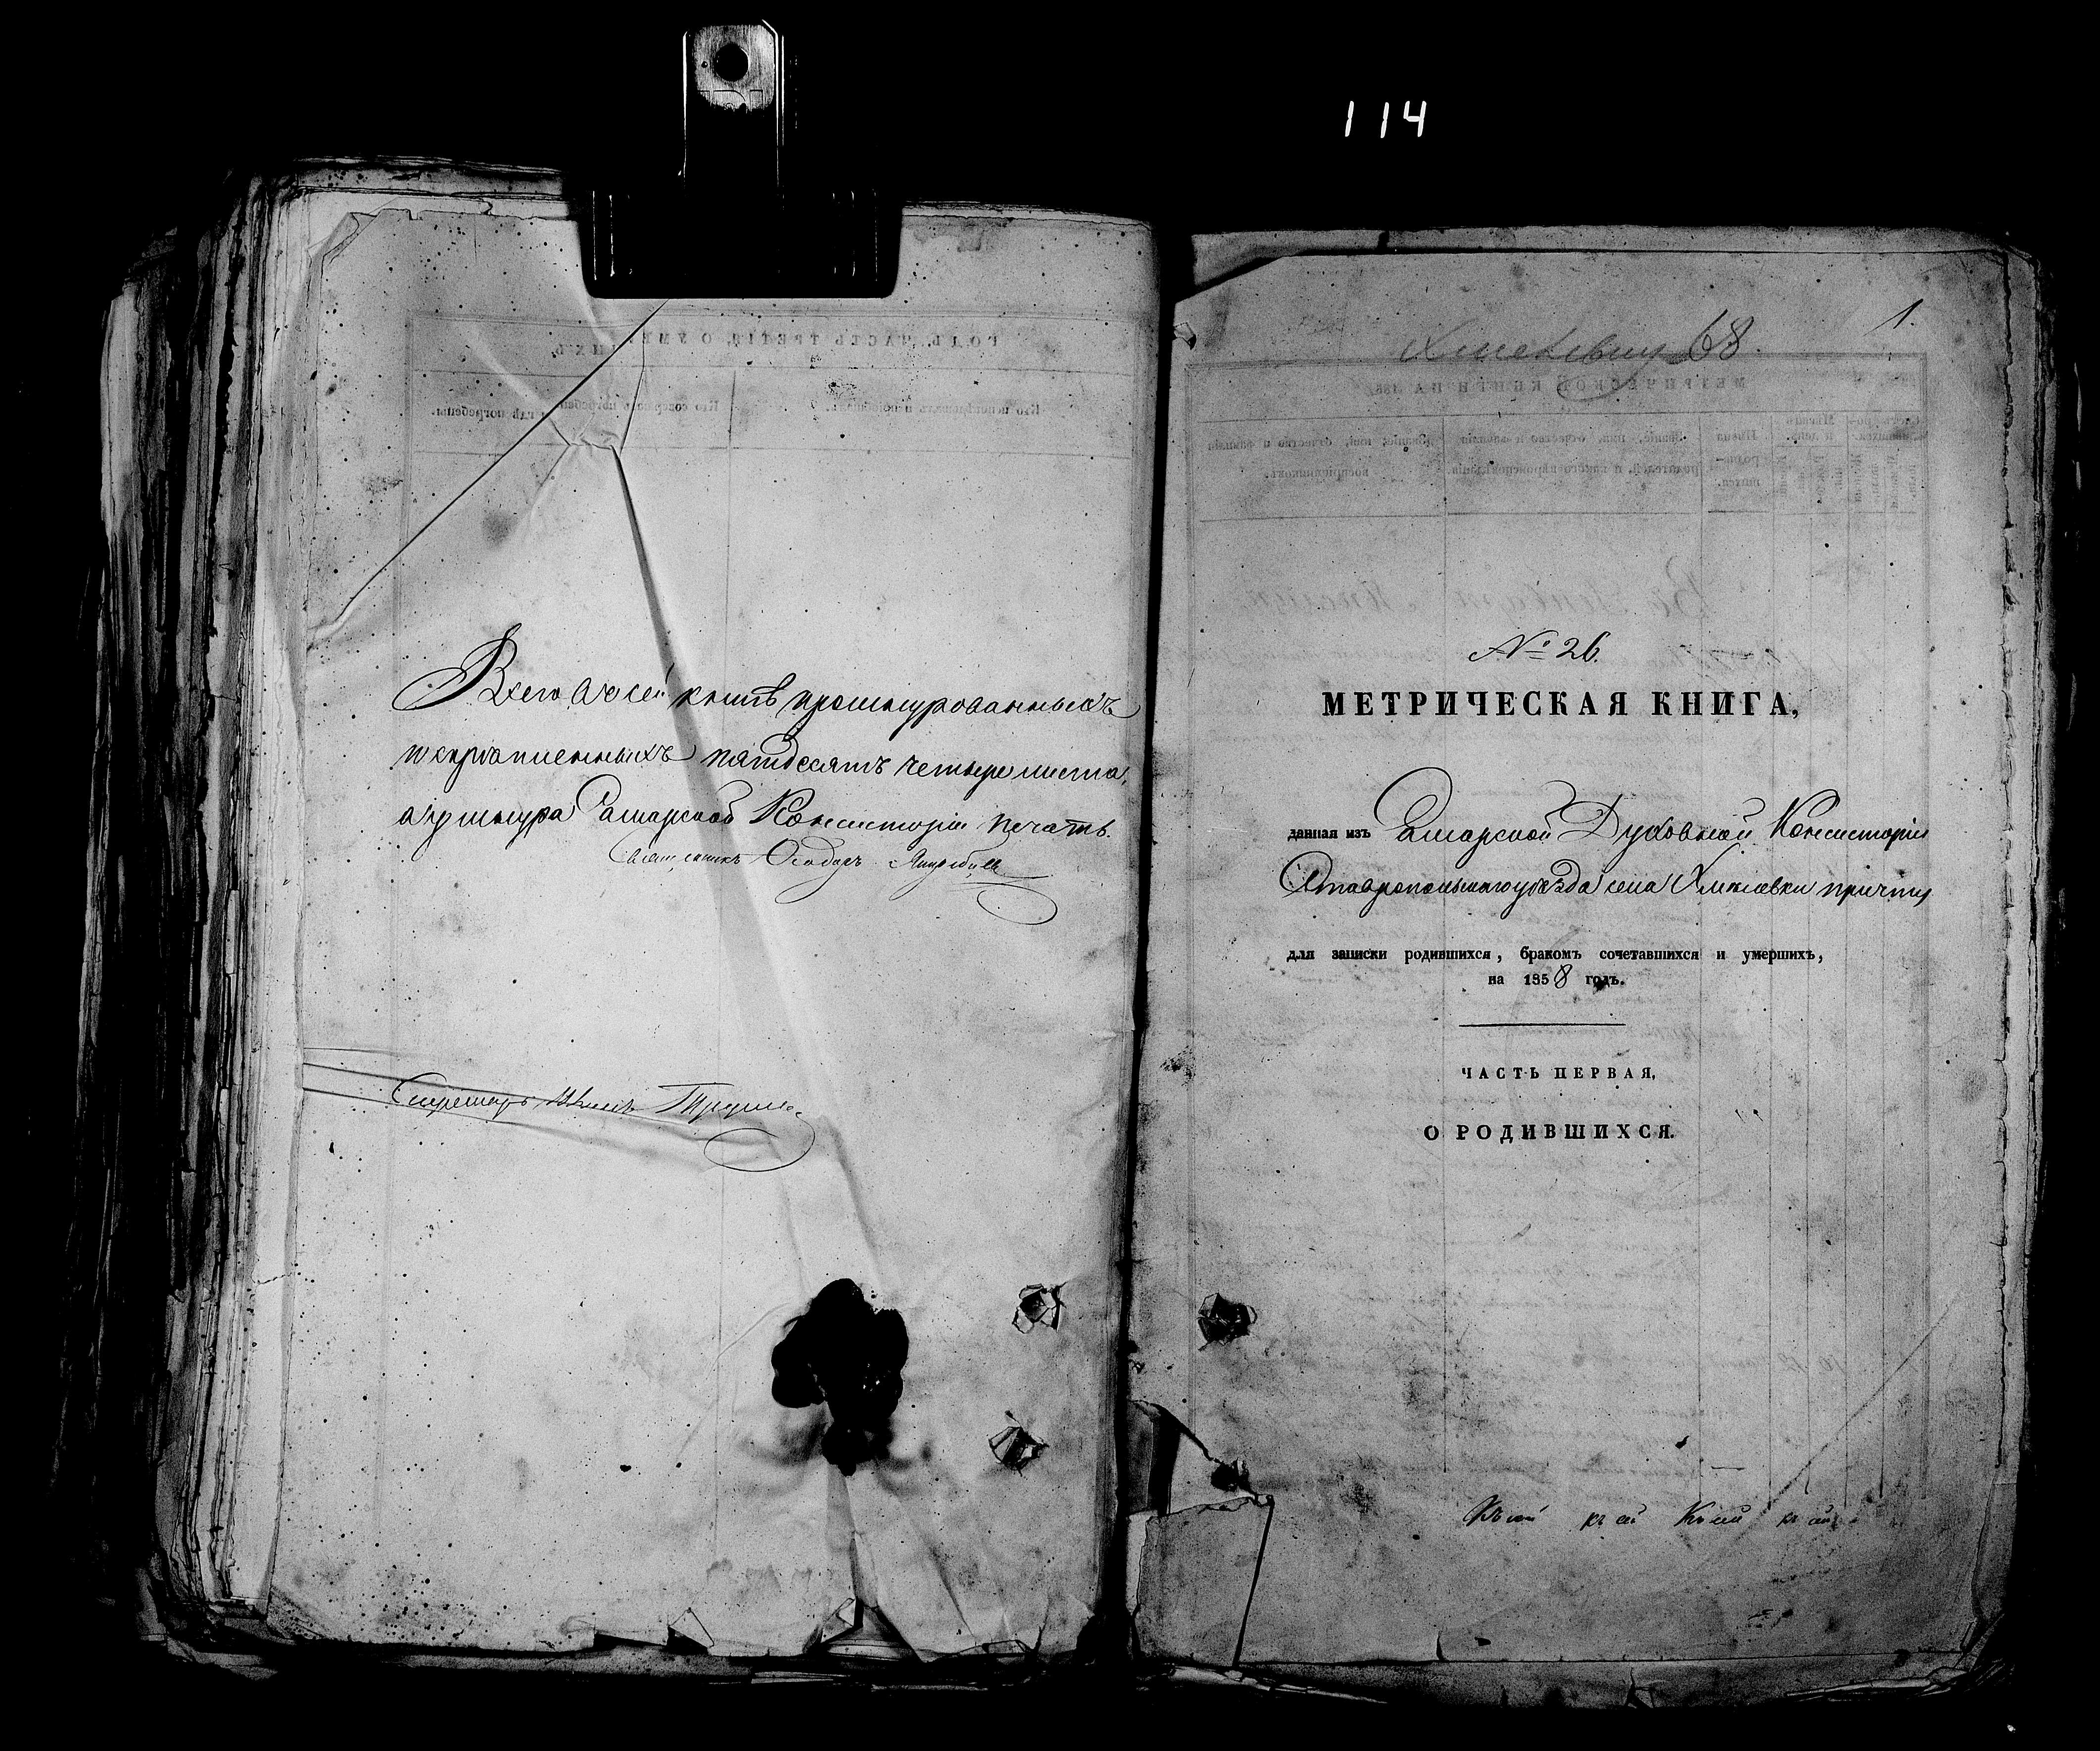 114
Всего въ сей книгѣ прошнурованныхъ
и скрѣпленныхъ пятдесятъ четыре листа,
а у шнура Самарской Консисторіи печать.
Секретарь
Хмелевки 68
1.
№ 26.
МЕТРИЧЕСКАЯ КНИГА,
данная изъ Самарской Духовной Консисторіи
Ставропольскаго уѣзда села Хмелевки причту
для записки родившихся, бракомъ сочетавшихся и умершихъ,
на 1858 годъ.
ЧАСТЬ ПЕРВАЯ,
О РОДИВШИХСЯ.